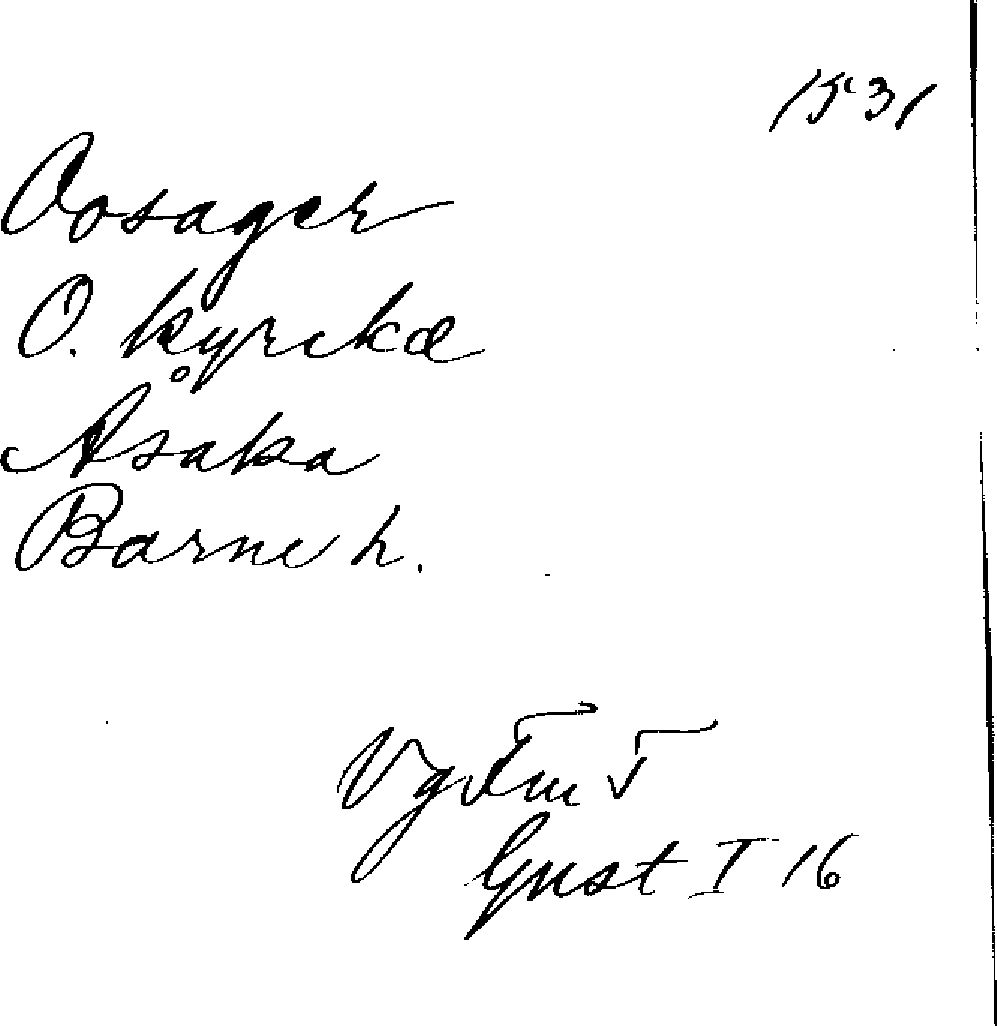 1531
Oosager
O. Kyrcka
Åsaka
Barne h.
Vg Fm 5
Gust I 16